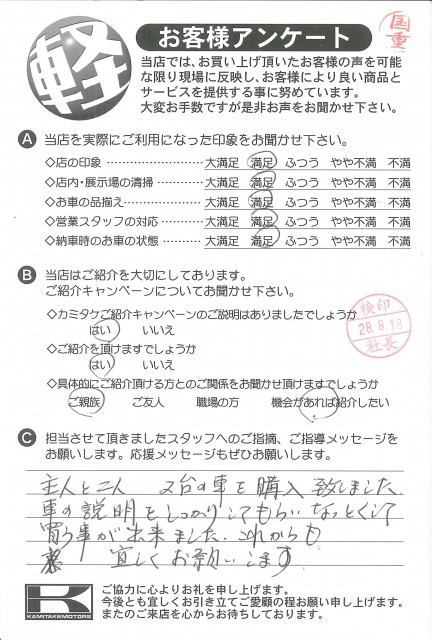 軽
お客様アンケート
国重
当店では、お買い上げ頂いたお客様の声を可能
な限り現場に反映し、お客様により良い商品と
サービスを提供する事に努めています。
大変お手数ですが是非お声をお聞かせ下さい。
A 当店を実際にご利用になった印象をお聞かせ下さい。
◇店の印象 ………………… 大満足 満足 ふつう やや不満 不満
◇店内・展示場の清掃………… 大満足 満足 ふつう やや不満 不満
◇お車の品揃え………………… 大満足 満足 ふつう やや不満 不満
◇営業スタッフの対応 ………… 大満足 満足 ふつう やや不満 不満
◇納車時のお車の状態 ………… 大満足 満足 ふつう やや不満 不満
B 当店はご紹介を大切にしております。
ご紹介キャンペーンについてお聞かせ下さい。
◇カミタケご紹介キャンペーンのご説明はありましたでしょうか
はい いいえ
◇ご紹介を頂けますでしょうか
はい いいえ
◇具体的にご紹介頂ける方とのご関係をお聞かせ頂けますでしょうか
ご親族 ご友人 職場の方 機会があれば紹介したい
検印
28.8.19
社長
C 担当させて頂きましたスタッフへのご指摘、ご指導メッセージを
お願いします。応援メッセージもぜひお願いします。
主人と二人 2台の車を購入致しました
車の説明をしっかりしてもらいなっとくして
買う事が出来ました これからも
宜しくお願いします
K
KAMITAKEMOTORS
ご協力に心よりお礼を申し上げます。
今後とも宜しくお引き立てご愛顧の程お願い申し上げます。
またのご来店を心からお待ちしております。